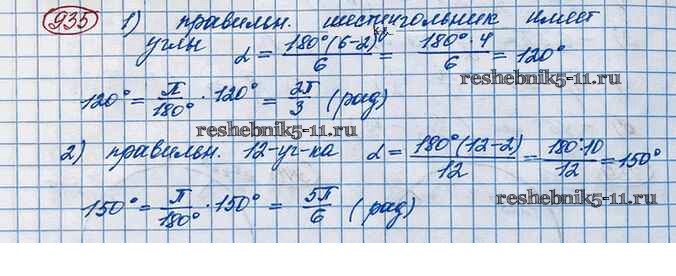 935 1) правильн. шестиугольник имеет
углы α = 180°(6-2)/6 = 180°·4/6 = 120°
reshebnik5-11.ru
120° = π/180° · 120° = 2π/3 (рад)
reshebnik5-11.ru
2) правильн. 12-уг-ка α = 180°(12-2)/12 = 180·10/12 = 150°
150° = π/180° · 150° = 5π/6 (рад)
reshebnik5-11.ru